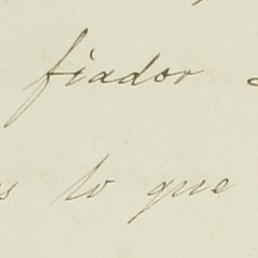 fiador
to que